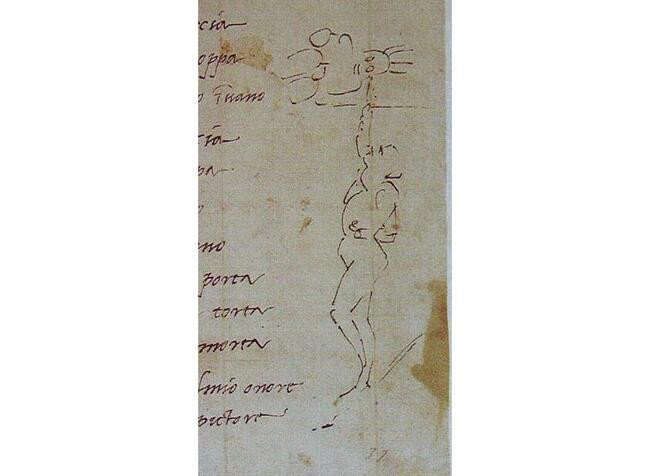 ecia
oppa
ano
cia
pa
o
ano
porta
torta
morta
lmio onore
pictore